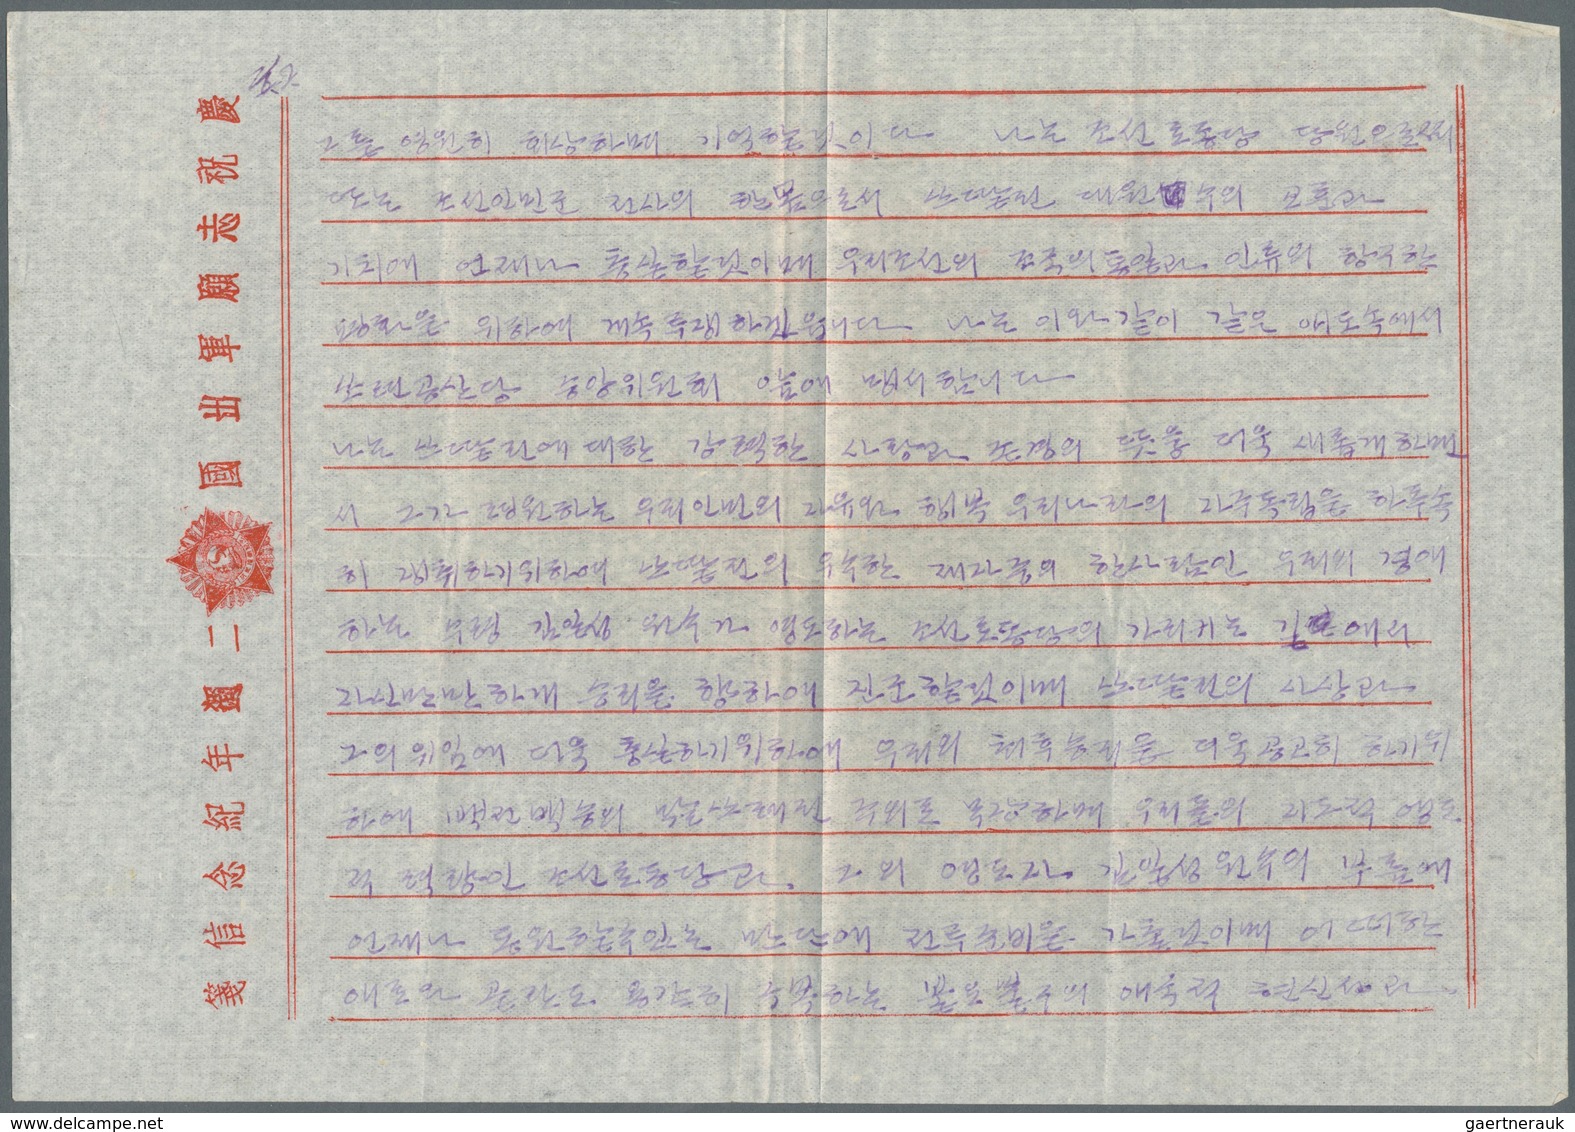 慶祝志願軍出國二週年紀念信箋
그를 영원히 회상하며 기억할것이다 나는 조선로동당 당원으로서
또는 조선인민군 전사의 한몸으로서 쓰딸린 대원수의 교훈과
기치에 언제나 충실할것이며 우리조선의 조국의 통일과 인류의 항구한
평화을 위하여 계속 투쟁하겠읍니다 나는 이와같이 같은 애도속에서
쏘련공산당 중앙위원회 앞에 맹서합니다
나는 쓰딸린에 대한 강력한 사랑과 존경의 뜻을 더욱 새롭게하며
서 그가 념원하는 우리인민의 자유와 행복 우리나라의 자주독립을 하루속
히 쟁취하기위하여 쓰딸린의 우수한 제자중의 한사람인 우리의 경애
하는 수령 김일성 원수가 영도하는 조선로동당의 가리키는 길에서
자신만만하게 승리을 향하여 진군할것이며 쓰딸린의 사상과
그의 위임에 더욱 충실하기위하여 우리의 최후승리을 더욱공고히 하기위
하여 백전백승의 맑쓰레닌 주의로 무장하며 우리들의 지도적 영도
적 력량인 조선로동당과 그의 영도자 김일성원수의 부름에
언제나 동원할수있는 만단에 전투준비을 가출것이며 어떠한
애로와 곤란도 용감히 극복하는 불요불굴의 애국적 헌신성과